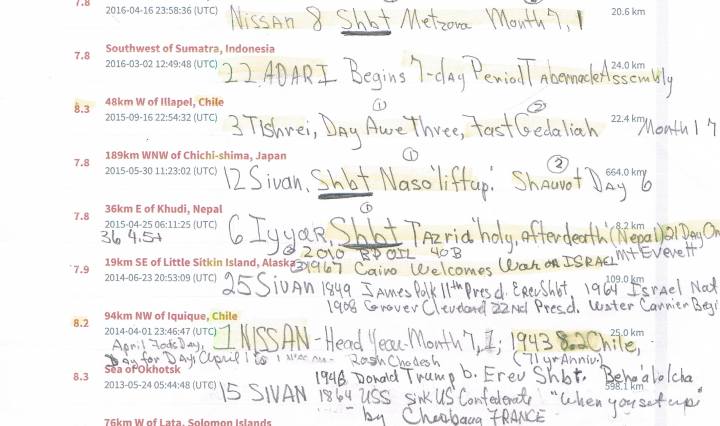 7.8
2016-04-16 23:58:36 (UTC) Nissan 8 Shbt Metzora Month 7, 1 20.6 km
7.8 Southwest of Sumatra, Indonesia
2016-03-02 12:49:48 (UTC) 22 ADAR I Begins 7-day Period Tabernacle Assembly 24.0 km
8.3 48km W of Illapel, Chile
2015-09-16 22:54:32 (UTC) 3 Tishrei, Day Awe Three, Fast Gedaliah 22.4 km Month 1 7
7.8 189km WNW of Chichi-shima, Japan
2015-05-30 11:23:02 (UTC) 12 Sivan, Shbt Naso 'lift up'. Shauvot Day 6 664.0 km
7.8 36km E of Khudi, Nepal
2015-04-25 06:11:25 (UTC) 6 Iyyar, Shbt Tazria 'holy, after death' (Nepal) 21 Day Om 8.2 km
36 4.5+ 2010 BP OIL 40B Mt Everett
7.9 19km SE of Little Sitkin Island, Alaska 1967 Cairo Welcomes War on ISRAEL
2014-06-23 20:53:09 (UTC) 25 SIVAN 1849 James Polk 11th Pres d. Erev Shbt, 1964 Israel Nat 109.0 km
1908 Grover Cleveland 22nd Pres d. Water Carrier Begi
8.2 94km NW of Iquique, Chile
2014-04-01 23:46:47 (UTC) 1 NISSAN - Head Year - Month 7, 1; 1943 8.2 Chile, 25.0 km
April Fools Day,
Day for Day; April 1 is 1 Nissan - Rosh Chodesh (71 yr Anniv.)
8.3 Sea of Okhotsk 1946 Donald Trump b. Erev Shbt. Beha'alolcha
2013-05-24 05:44:48 (UTC) 15 SIVAN 1864 USS sink US Confederate "when you set up" 598.1 km
by FRANCE
76km W of Lata, Solomon Islands